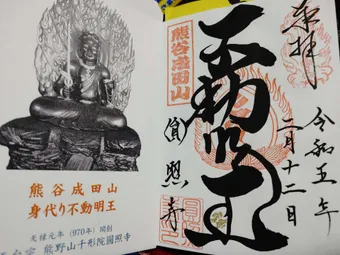 奉拝
令和五年
二月十二日
不動明王
圓照寺
熊谷成田山
熊谷成田山
身代り不動明王
天禄元年（970年）開創
天台宗 能野山千形院圓照寺